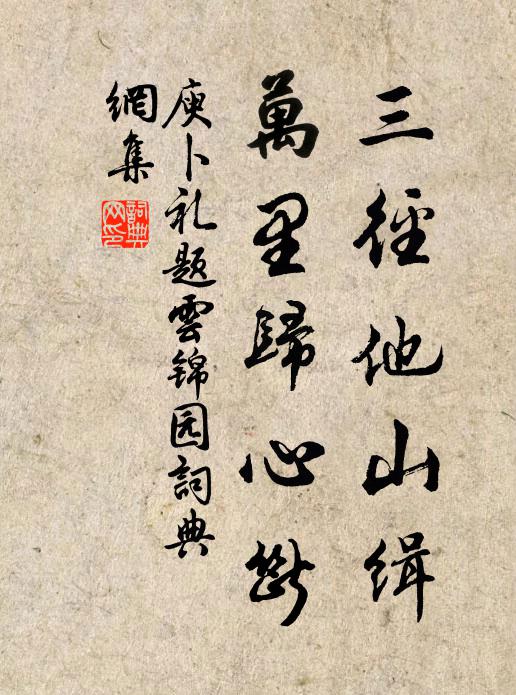 三徑他山緝
萬里歸心斷
庾卜礼題雲锦园詞典
網集
詞典
网印